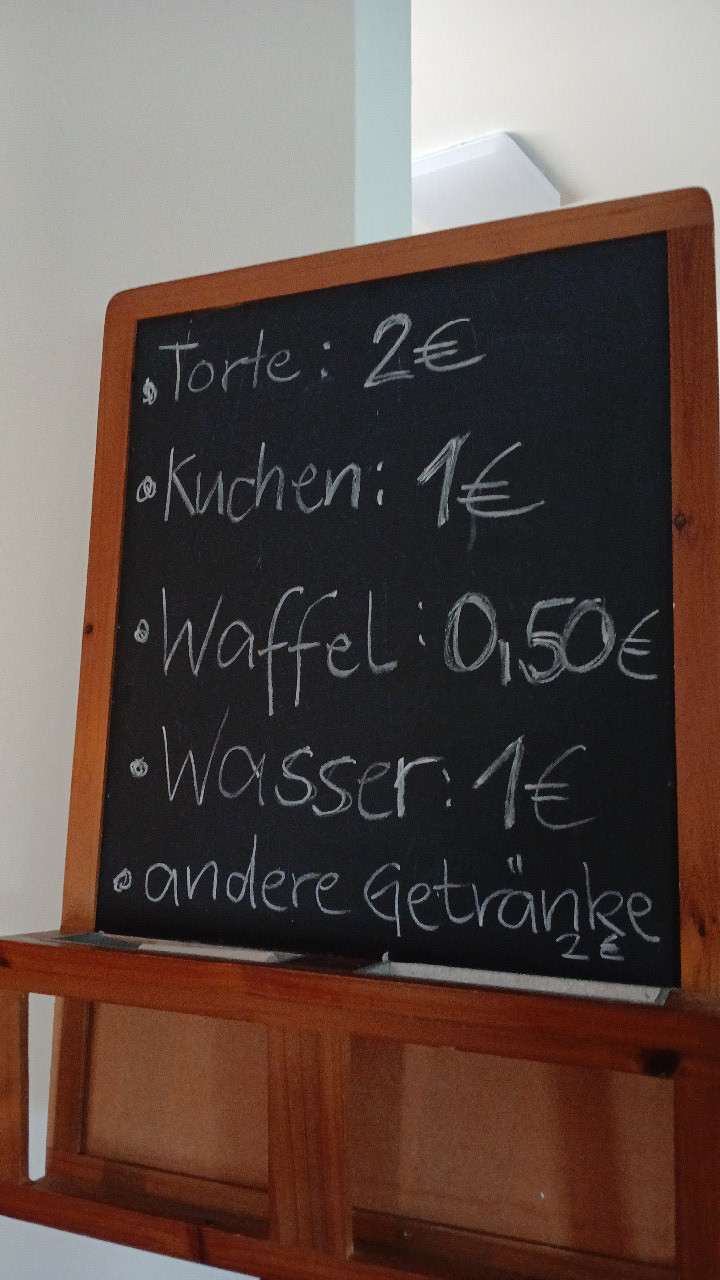 Torte: 2€
Kuchen: 1€
Waffel: 0,50€
Wasser: 1€
andere Getränke
2€